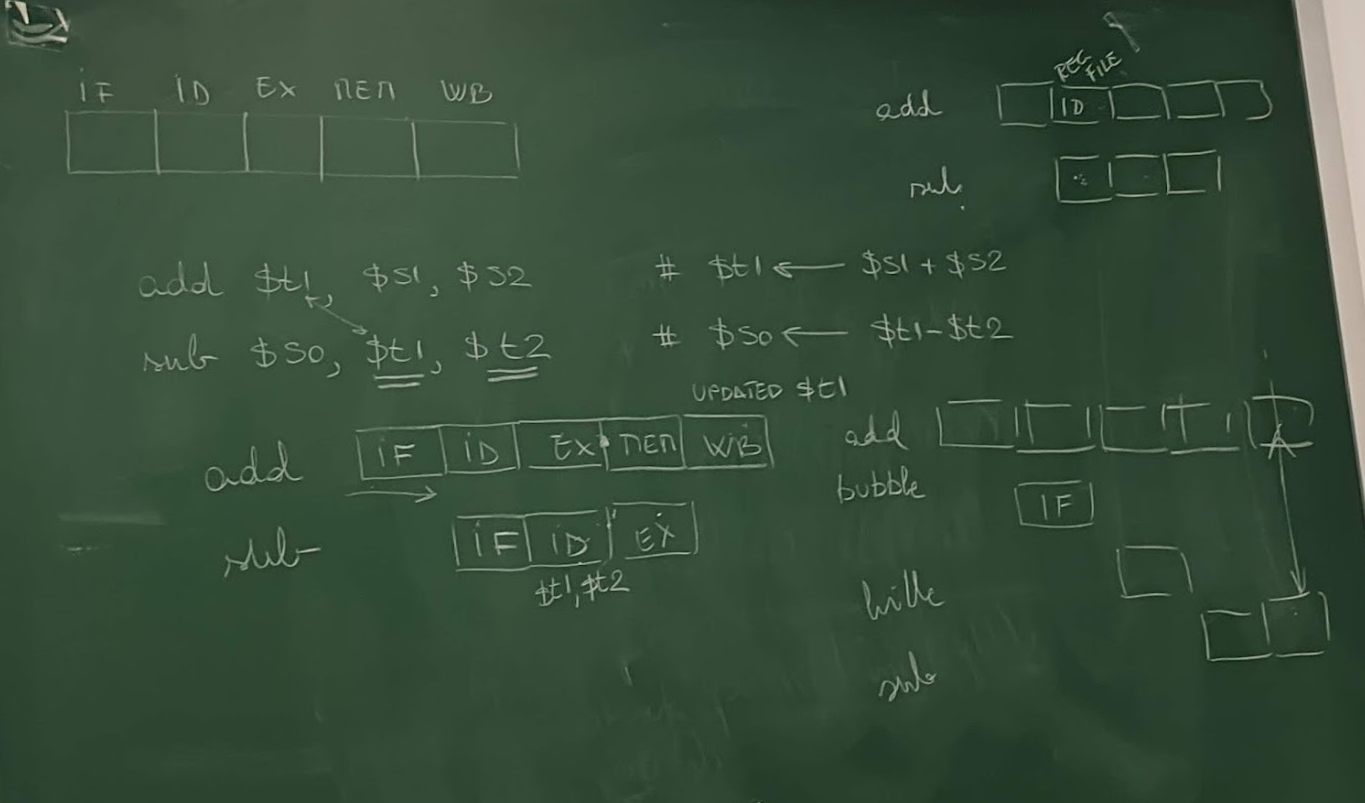 IF ID EX MEM WB
REG FILE
add ID
sub
add $t1, $s1, $s2 # $t1 ← $s1 + $s2
sub $s0, $t1, $t2 # $s0 ← $t1 - $t2
UPDATED $t1
add IF ID EX MEM WB
sub IF ID EX
$t1, $t2
add
bubble IF
sub